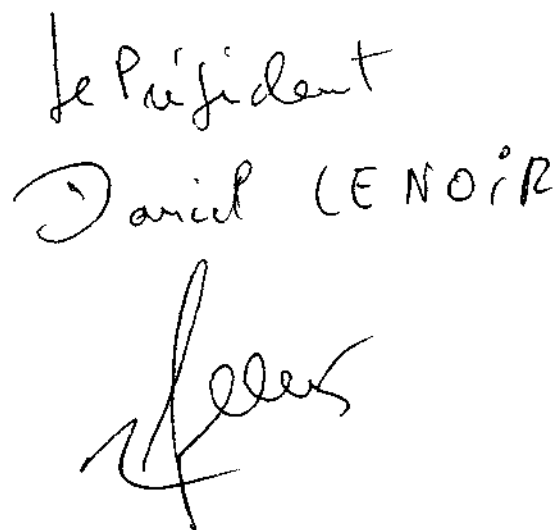 Le Président
Daniel LENOIR